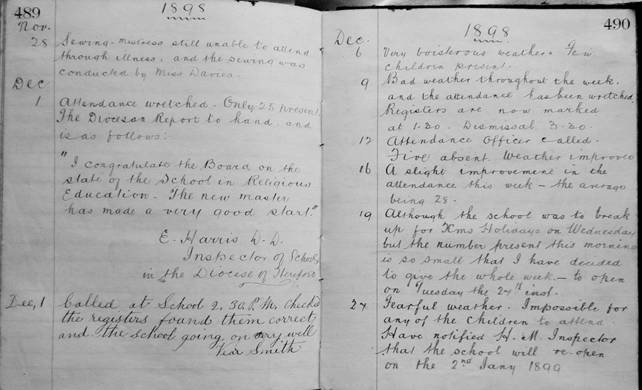 489
1898
Nov.
28 Sewing-mistress still unable to attend
through illness, and the sewing was
conducted by Miss Davies.
Dec
1 Attendance wretched. Only 25 present
The Diocesan Report to hand, and
is as follows:
"I congratulate the Board on the
state of the School in Religious
Education. The new master
has made a very good start."
E. Harris D.D.
Inspector of Schools
in the Diocese of Hereford
Dec, 1 Called at School 2.30 P.M. Checked
the registers found them correct
and the school going on very well
Smith
490
1898
Dec.
6 Very boisterous weather. Few
children present.
9 Bad weather throughout the week,
and the attendance has been wretched
Registers are now marked
at 1.20. Dismissal 3.20.
12 Attendance Officer called.
Five absent. Weather improved
16 A slight improvement in the
attendance this week – the average
being 28.
19 Although the school was to break
up for Xms Holidays on Wednesday
but the number present this morning
is so small that I have decided
to give the whole week – to open
on Tuesday the 27th inst.
27 Fearful weather. Impossible for
any of the children to attend.
Have notified H. M. Inspector
that the school will re-open
on the 2nd Jany 1899